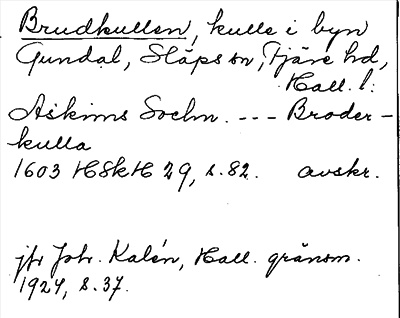 Brudkullen, kulle i byn
Gundal, Släps sn, Fjäre hd,
Hall. l.
Askims Sochn. --- Broder-
kulla
1603 HSkH 29, s. 82. avskr.
jfr Joh. Kalén, Hall. gränsm.
1924, s. 37.